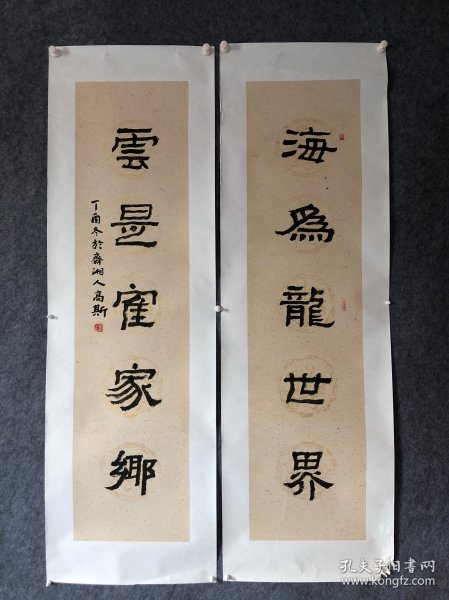 海為龍世界
雲是隺家鄉
丁酉冬於齊湘人高斯
孔夫子旧书网
www.kongfz.com